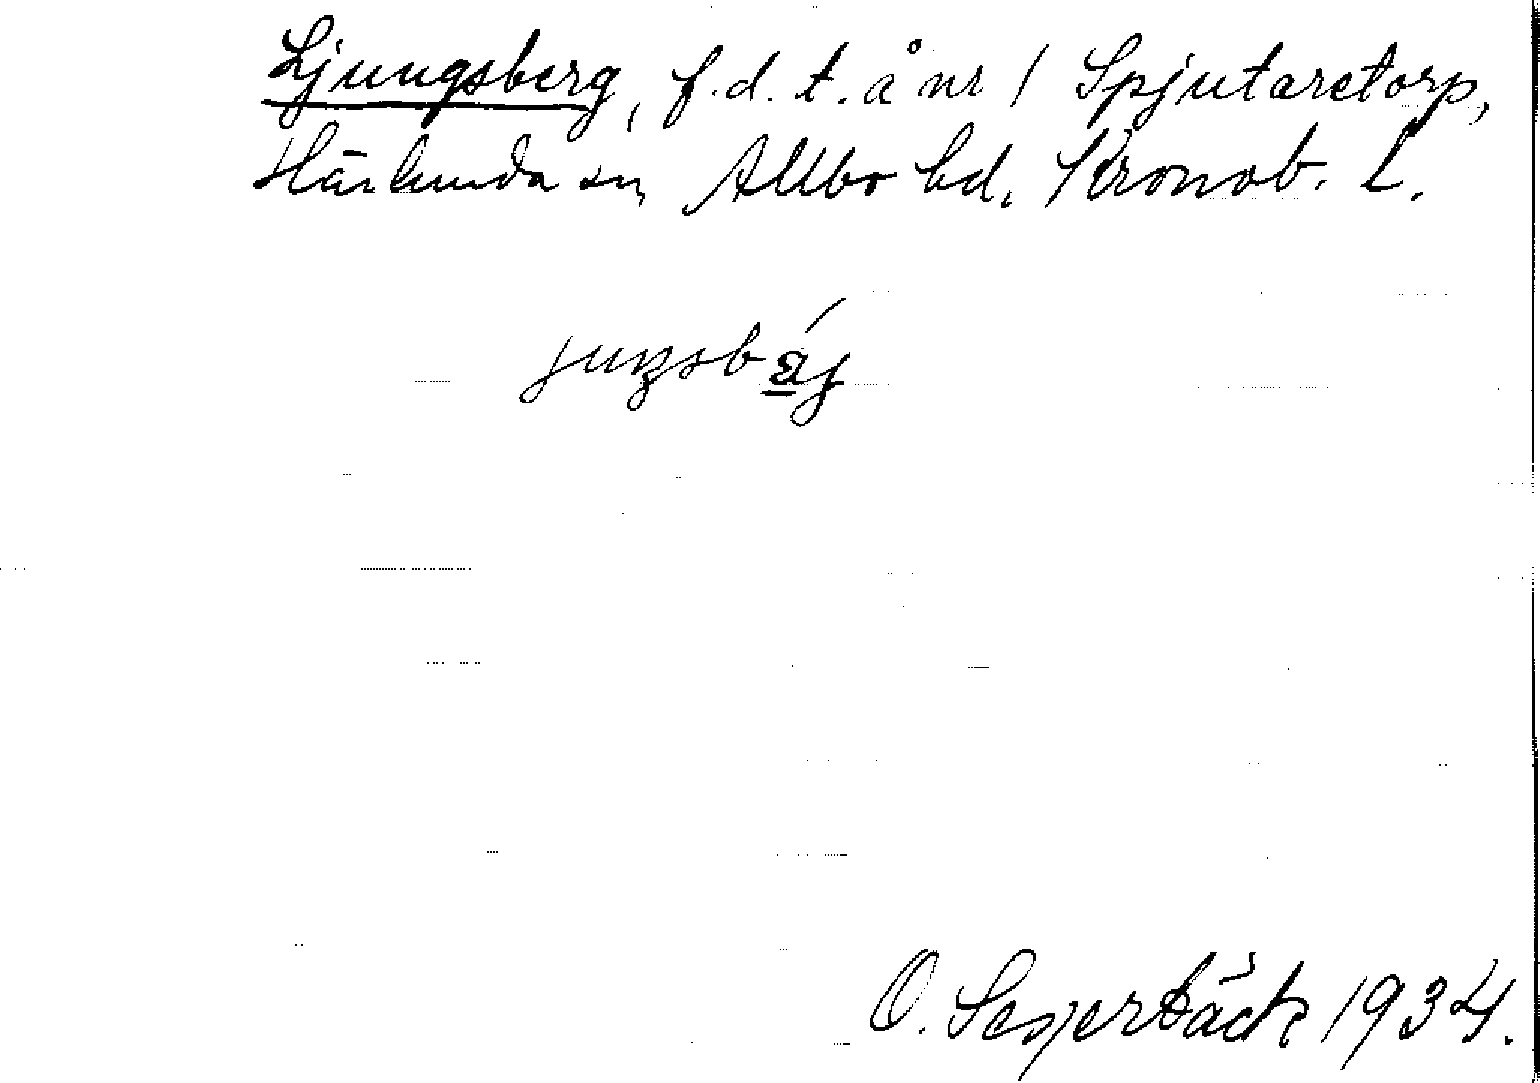 Ljungsberg, f.d. t. å nr 1 Spjutaretorp,
Härlunda sn, Allbo hd, Kronob. L.
O. 1934.